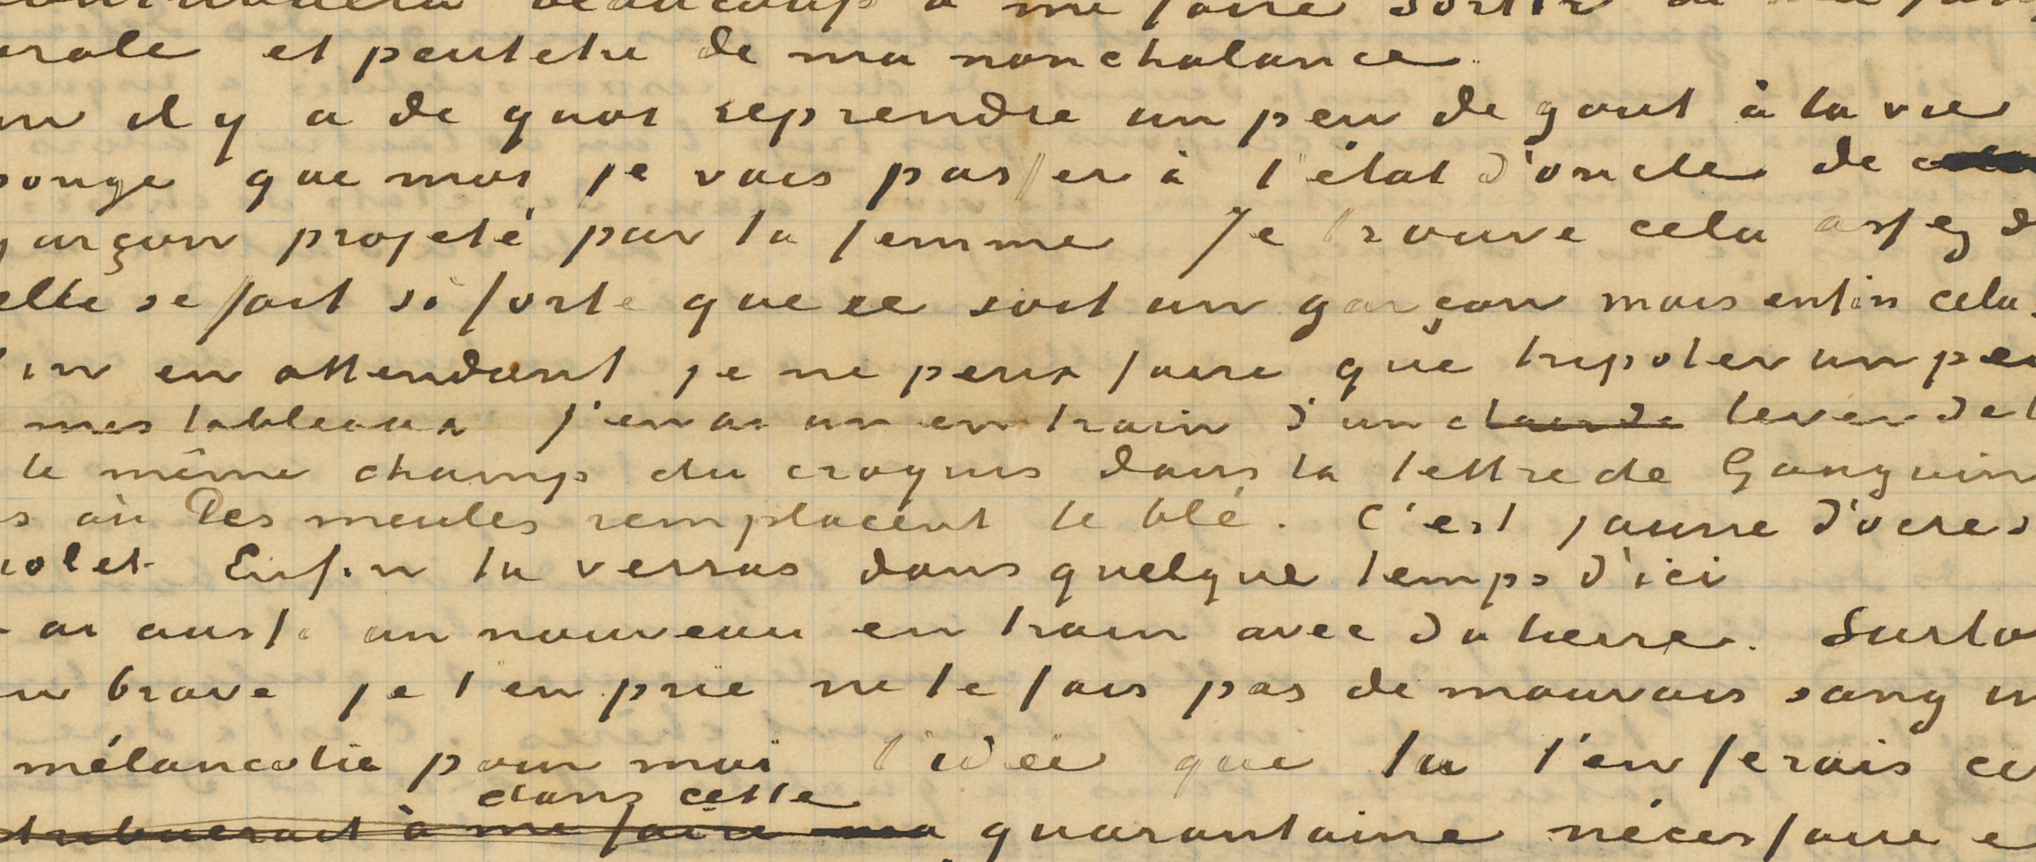 beaucoup à me faire sortir de ma
et peutetre de ma nonchalance.
il y a de quoi reprendre un peu de gout à la vie
que moi je vais passer à l'état d'oncle de
garçon projeté par ta femme Je trouve cela assez
elle se fait si forte que ce soit un garçon mais enfin cela
en attendant je ne peux faire que tripoter un peu
mes tableaux j'en ai un en train d'un clair de lever de
le même champ du croquis dans la lettre de Gauguin
où les meules remplacent le blé. C'est jaune d'ocre
Enfin tu verras dans quelque temps d'ici
ai aussi un nouveau en train avec du lierre. Surto
brave je t'en prie ne te fais pas de mauvais sang
mélancolie pour moi l'idée que tu t'en ferais
dans cette
à me faire ma quarantaine nécessaire e